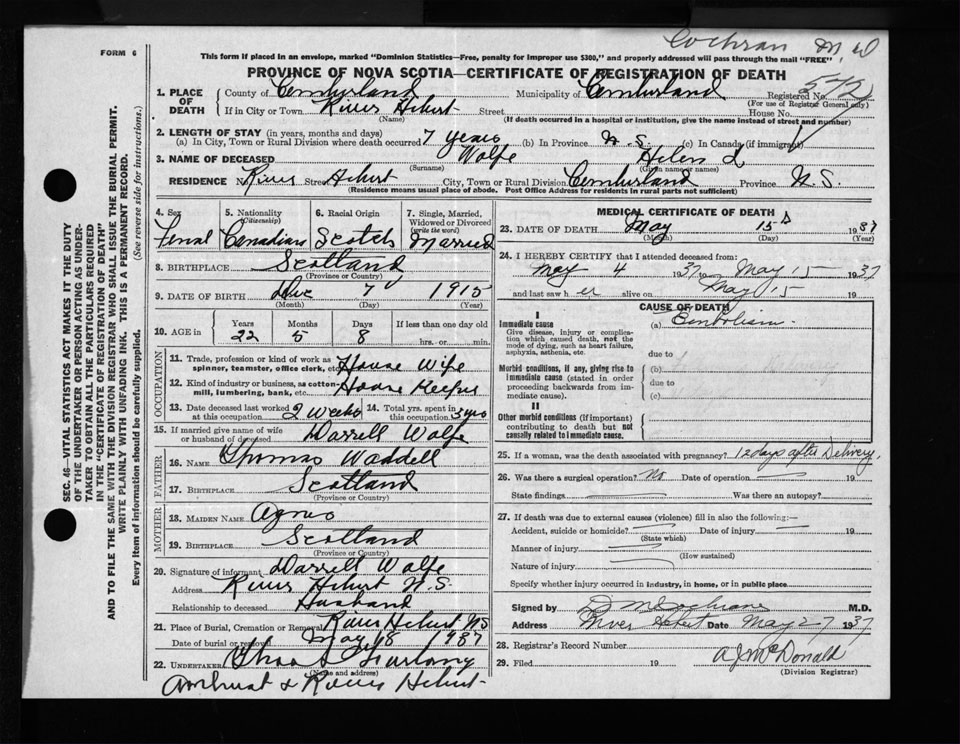 Cochran M.D
FORM 6
This form if placed in an envelope, marked "Dominion Statistics—Free, penalty for improper use $300," and properly addressed will pass through the mail "FREE"
PROVINCE OF NOVA SCOTIA—CERTIFICATE OF REGISTRATION OF DEATH
SEC. 46—VITAL STATISTICS ACT MAKES IT THE DUTY
OF THE UNDERTAKER OR PERSON ACTING AS UNDER-
TAKER TO OBTAIN ALL THE PARTICULARS REQUIRED
IN THE "CERTIFICATE OF REGISTRATION OF DEATH"
AND TO FILE THE SAME WITH THE DIVISION REGISTRAR WHO SHALL ISSUE THE BURIAL PERMIT.
WRITE PLAINLY WITH UNFADING INK. THIS IS A PERMANENT RECORD.
Every item of information should be carefully supplied. (See reverse side for instructions.)
1. PLACE OF DEATH County of Cumberland Municipality of Cumberland Registered No. 572
(For use of Registrar General only)
If in City or Town River Hebert Street House No.
(Name) (If death occurred in a hospital or institution, give the name instead of street and number)
2. LENGTH OF STAY (in years, months and days)
(a) In City, Town or Rural Division where death occurred 7 years (b) In Province N.S. (c) In Canada (if immigrant)
3. NAME OF DECEASED Wolfe Helen L
(Surname) (Given name or names)
RESIDENCE No. River Street Hebert City, Town or Rural Division Cumberland Province N.S.
(Residence means usual place of abode. Post Office Address for residents in rural parts not sufficient)
4. Sex Femal
5. Nationality (Citizenship) Canadian
6. Racial Origin Scotch
7. Single, Married, Widowed or Divorced (write the word) Married
8. BIRTHPLACE Scotland
(Province or Country)
9. DATE OF BIRTH Dec 7 1915
(Month) (Day) (Year)
10. AGE in Years 22 Months 5 Days 8 If less than one day old
hrs. or min.
OCCUPATION
11. Trade, profession or kind of work as spinner, teamster, office clerk, etc. House Wife
12. Kind of industry or business, as cotton-mill, lumbering, bank, etc. House Keeper
13. Date deceased last worked at this occupation 2 weeks 14. Total yrs. spent in this occupation 3 yrs
15. If married give name of wife or husband of deceased Darrell Wolfe
FATHER
16. NAME Thomas Waddell
17. BIRTHPLACE Scotland
(Province or Country)
MOTHER
18. MAIDEN NAME Agnes
19. BIRTHPLACE Scotland
(Province or Country)
20. Signature of informant Darrell Wolfe
Address River Hebert N.S.
Relationship to deceased Husband
21. Place of Burial, Cremation or Removal River Hebert NS
Date of burial or removal May 18 1937
22. UNDERTAKER
(Name and address)
Amhurst & River Hebert
MEDICAL CERTIFICATE OF DEATH
23. DATE OF DEATH May 15 1937
(Month) (Day) (Year)
24. I HEREBY CERTIFY that I attended deceased from:
May 4 1937 May 15 1937
and last saw h er alive on May 15 19
CAUSE OF DEATH
I
Immediate cause
Give disease, injury or complication which caused death, not the mode of dying, such as heart failure, asphyxia, asthenia, etc.
(a) Embolism
due to
Morbid conditions, if any, giving rise to immediate cause (stated in order proceeding backwards from immediate cause).
(b)
due to
(c)
II
Other morbid conditions (if important) contributing to death but not causally related to immediate cause.
25. If a woman, was the death associated with pregnancy? 12 days after Delivery.
26. Was there a surgical operation? No Date of operation 19
State findings Was there an autopsy?
27. If death was due to external causes (violence) fill in also the following:—
Accident, suicide or homicide? Date of injury 19
(State which)
Manner of injury
(How sustained)
Nature of injury
Specify whether injury occurred in industry, in home, or in public place
Signed by D M Cochrane M.D.
Address River Hebert Date May 27 1937
28. Registrar's Record Number
29. Filed 19 A J McDonald
(Division Registrar)